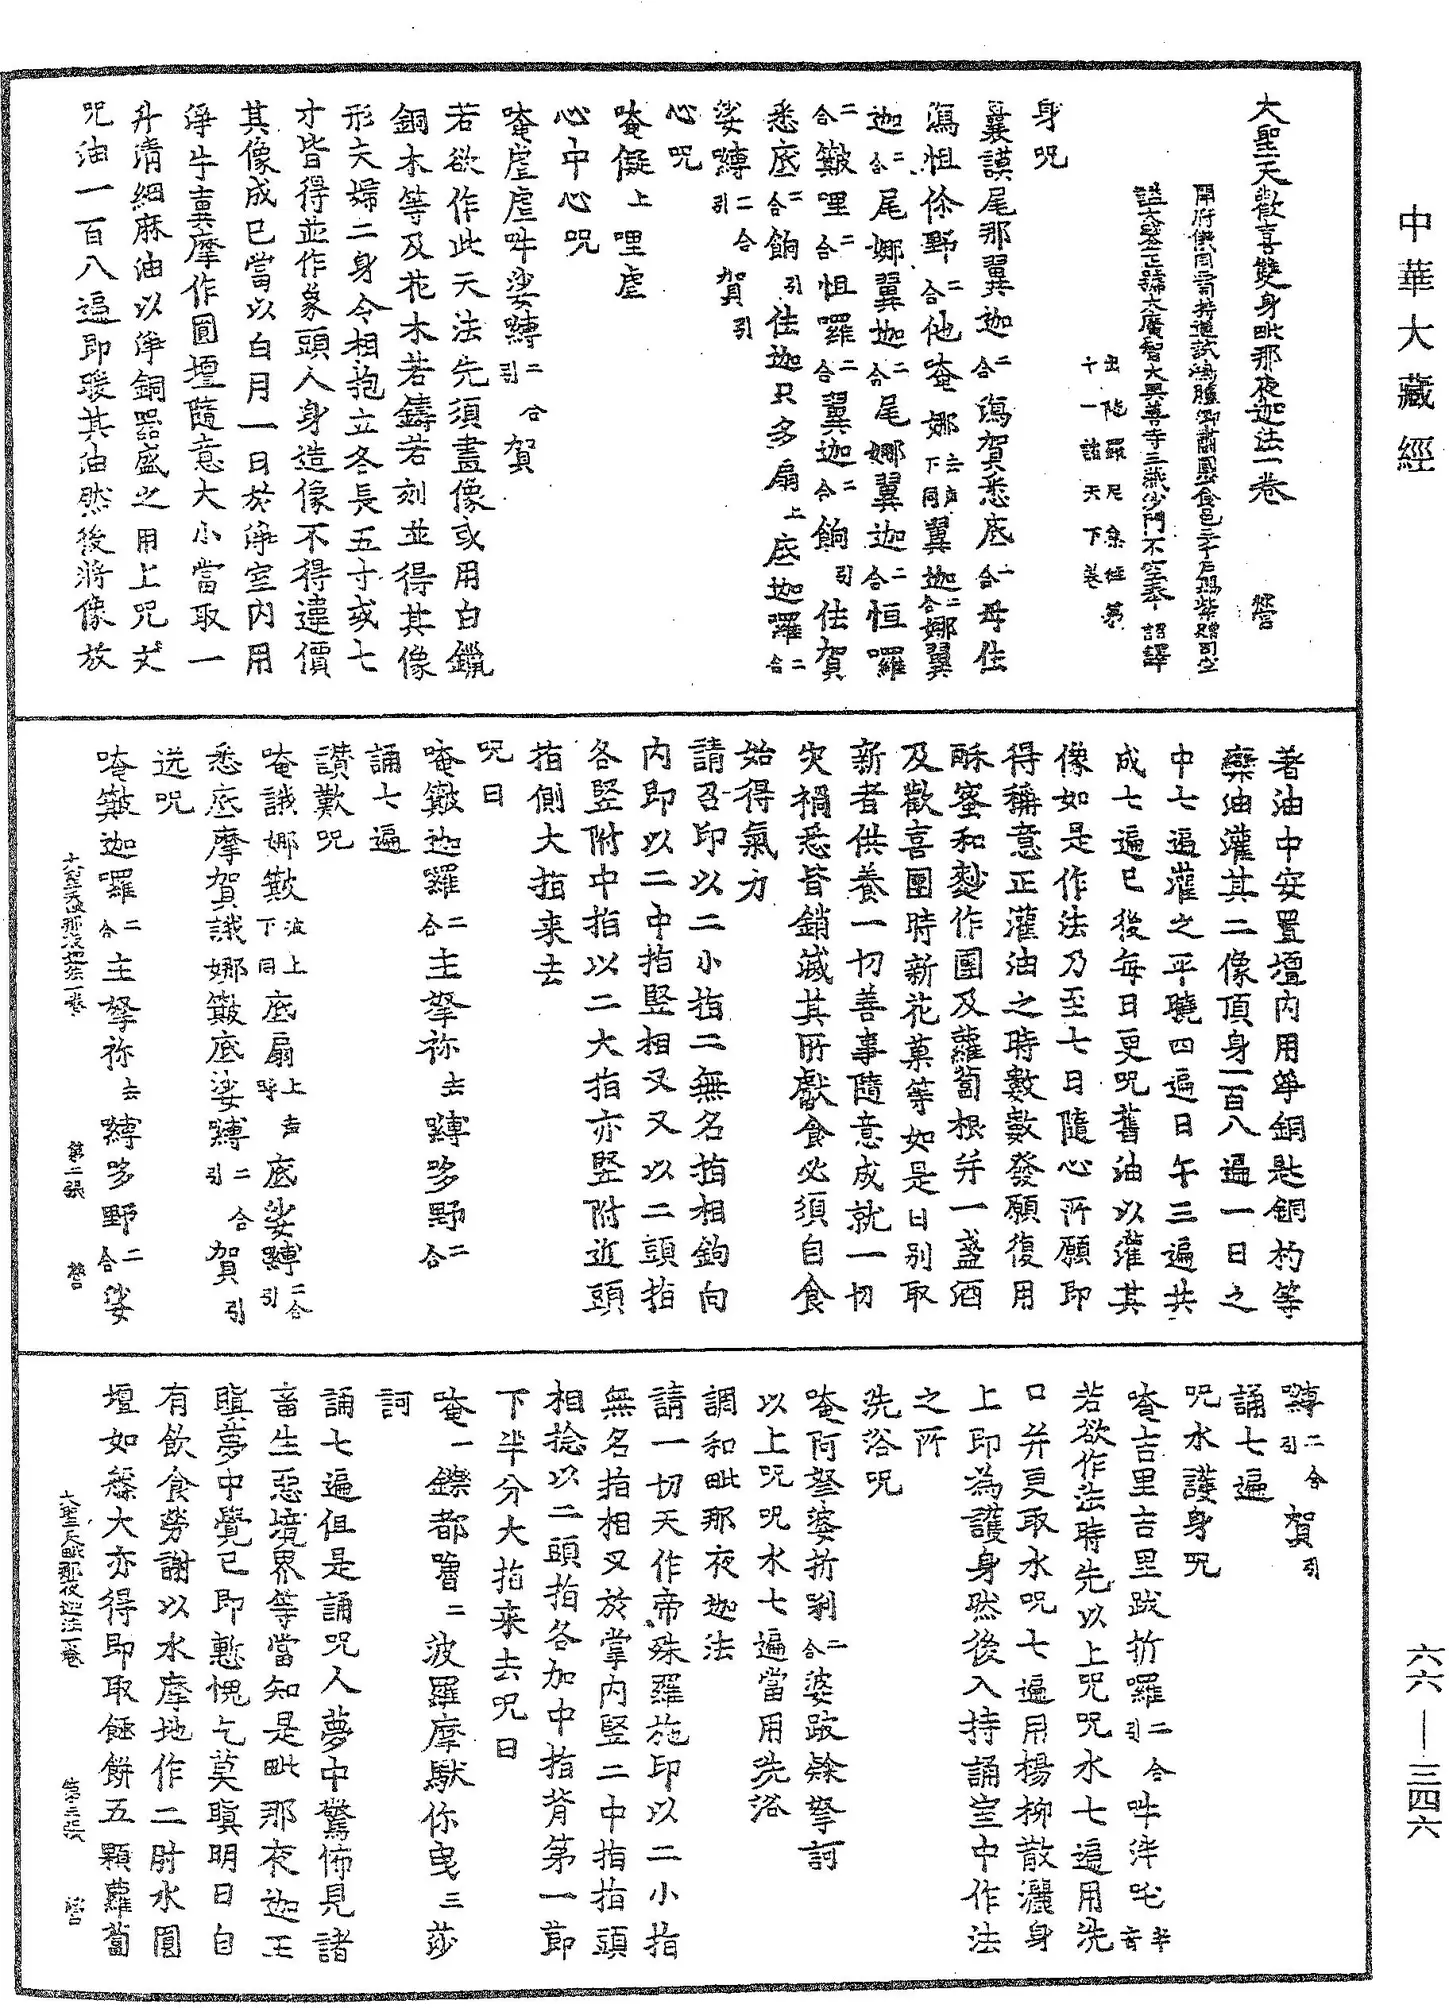 中華大藏經
大聖天歡喜雙身毗那夜迦法一卷 營
開府儀同三司特進試鴻臚卿肅國公食邑三千戶賜紫贈司空
諡大鑒正號大廣智大興善寺三藏沙門不空奉 詔譯
出陁羅尼集經第
十一諸天下卷
身呪
曩謨尾那翼迦二合瀉賀悉底一合母佉
瀉怛你野二合他唵娜去聲下同翼迦二合娜翼
迦二合尾娜翼迦二合尾娜翼迦二合恒囉
二合簸哩二合怛囉二合翼迦二合餉引佉賀
悉底二合餉引佉迦只多扇上底迦羅二合
娑嚩二合引賀引
心呪
唵儗上哩虐
心中心呪
唵虐虐吽娑嚩二合引賀
若欲作此天法先須畫像或用白鑞
銅木等及花木若鑄若刻並得其像
形夫婦二身令相抱立各長五寸或七
寸皆得並作象頭人身造像不得違價
其像成已當以白月一日於淨室內用
淨牛糞摩作圓壇隨意大小當取一
升清細麻油以淨銅器盛之用上呪文
呪油一百八遍即暖其油然後將像放
著油中安置壇內用淨銅匙銅杓等
㪺油灌其二像頂身一百八遍一日之
中七遍灌之平曉四遍日午三遍共
成七遍已後每日更呪舊油以灌其
像如是作法乃至七日隨心所願即
得稱意正灌油之時數數發願復用
酥蜜和麨作團及蘿蔔根并一盞酒
及歡喜團時新花菓等如是日別取
新者供養一切善事隨意成就一切
災禍悉皆銷滅其所獻食必須自食
始得氣力
請召印以二小指二無名指相鉤向
內即以二中指竪相叉又以二頭指
各竪附中指以二大指亦竪附近頭
指側大指来去
呪曰
唵簸迦羅二合主拏祢去嚩哆野二合
誦七遍
讃歎呪
唵誐娜簸波上下同底扇上聲呼底娑嚩二合引
悉底摩賀誐娜簸底娑嚩二合引賀引
送呪
唵簸迦囉二合主拏祢去嚩哆野二合娑
大聖天毗那夜迦法一卷 第二張 營
嚩二合引賀引
誦七遍
呪水護身呪
唵吉里吉里跋折囉二合引吽泮吒半音
若欲作法時先以上呪呪水七遍用洗
口并更取水呪七遍用楊柳散灑身
上即為護身然後入持誦室中作法
之所
洗浴呪
唵阿蜜婆折唎二合婆跛㜸拏訶
以上呪呪水七遍當用洗浴
調和毗那夜迦法
請一切天作帝殊羅施印以二小指
無名指相叉於掌內竪二中指指頭
相捻以二頭指各加中指背第一節
下半分大指来去呪曰
唵一鑠都嚕二波羅摩馱你曳三莎
訶
誦七遍但是誦呪人夢中驚怖見諸
畜生惡境界等當知是毗那夜迦王
瞋夢中覺已即慙愧乞莫瞋明日自
有飲食勞謝以水摩地作二肘水圓
壇如槃大亦得即取䭔餅五顆蘿蔔
大聖天毗那夜迦法一卷 第三張 營
六六—三四六